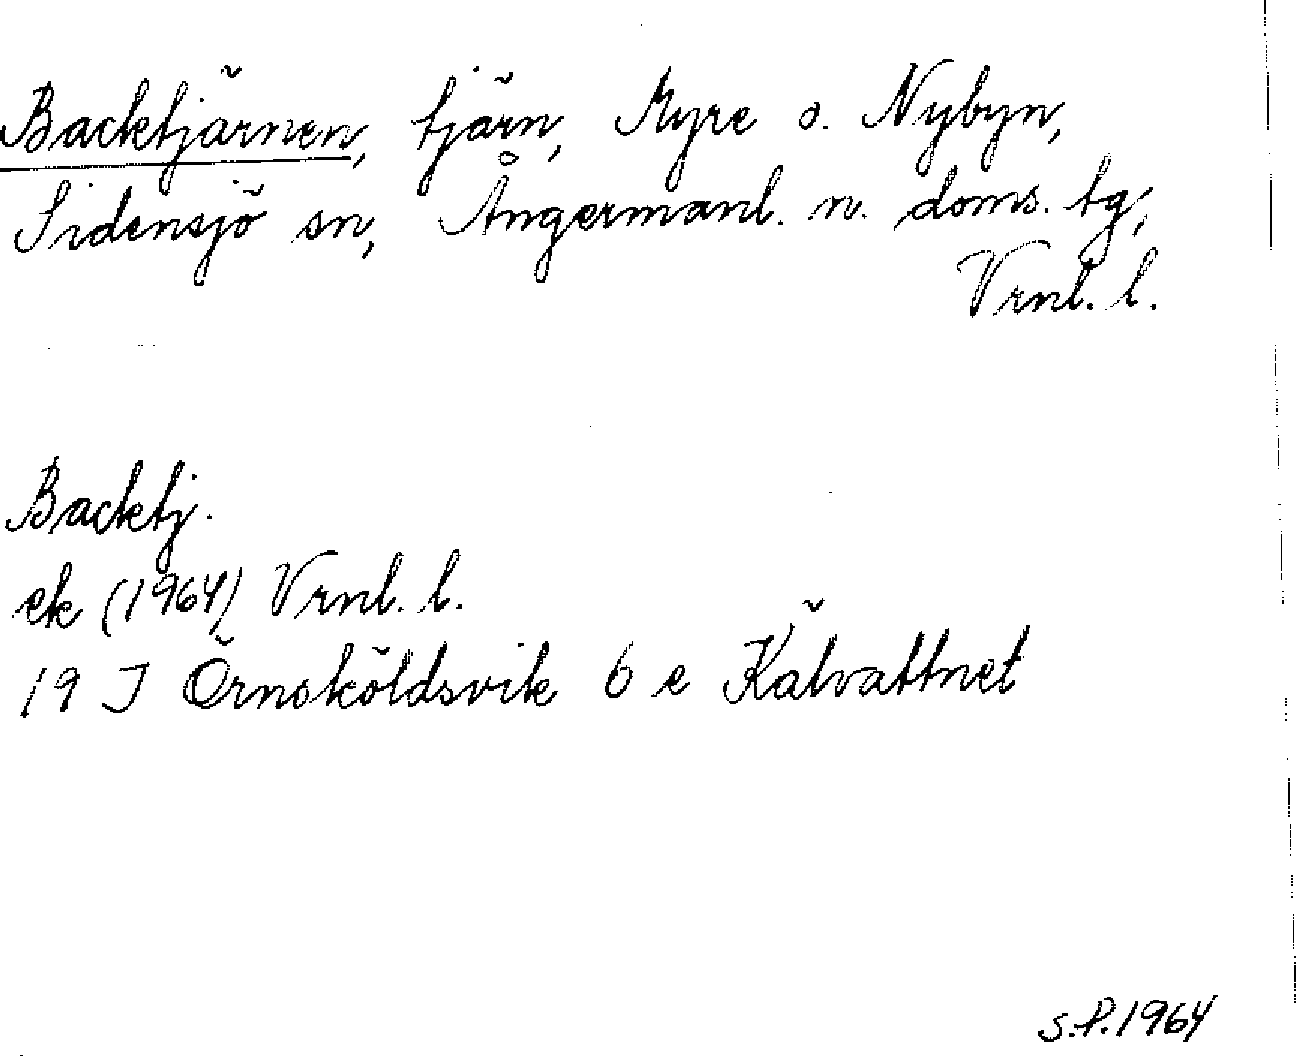 Backtjärnen, tjärn, Myre o. Nybyn,
Sidensjö sn, Ångermanl. n. doms. tg,
Vrnl. l.
Backtj.
ek (1964) Vrnl. l.
19 J Örnsköldsvik 6 e Kälvattnet
S.P. 1964